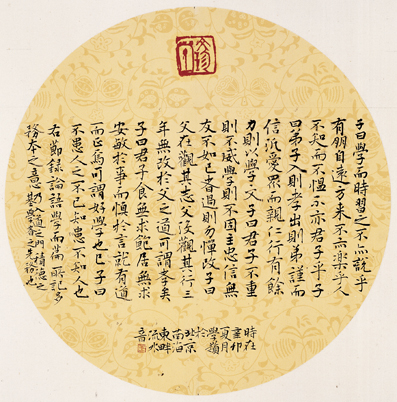 子曰學而時習之不亦說乎
有朋自遠方来不亦樂乎人
不知而不慍不亦君子乎子
曰弟子入則孝出則弟謹而
信汎愛眾而親仁行有餘
力則以學文子曰君子不重
則不威學則不固主忠信無
友不如己者過則勿憚改子曰
父在觀其志父沒觀其行三
年無改於父之道可謂孝矣
子曰君子食無求飽居無求
安敏於事而慎於言就有道
而正焉可謂好學也已子曰
不患人之不己知患不知人也
右節錄論語學而篇所記多
務本之意乃入道之門積德之
時在
辛卯
夏月
學嶺
於
北京
南海
東畔
流水
音